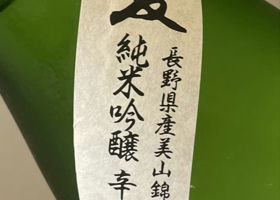 長野県産美山錦
純米吟醸 辛